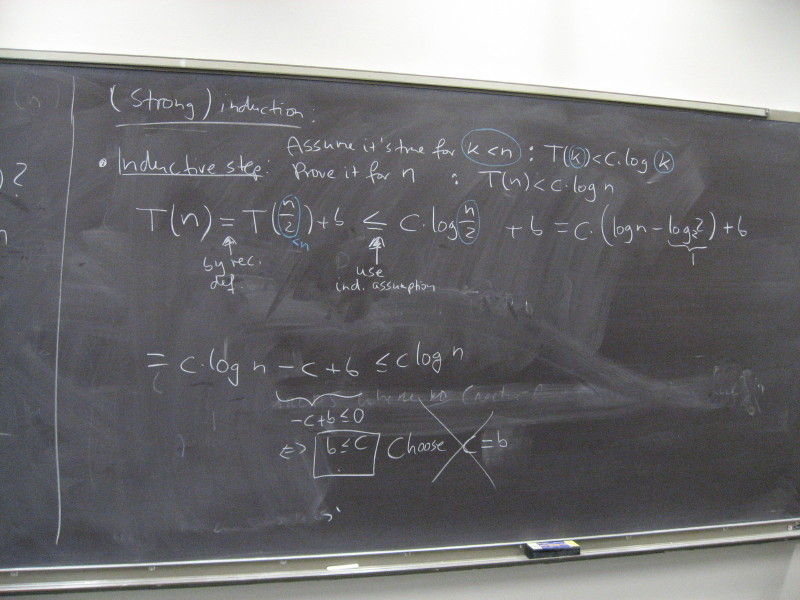 (Strong) induction:
Assume it's true for k < n : T(k) < c·log k
• Inductive step: Prove it for n : T(n) < c·log n
T(n) = T(n/2) + b ≤ c·log n/2 + b = c·(log n − log₂2) + b
<n
1
by rec. def.
use ind. assumption
= c·log n − c + b ≤ c log n
−c+b ≤ 0
⇔ b ≤ c Choose c = b